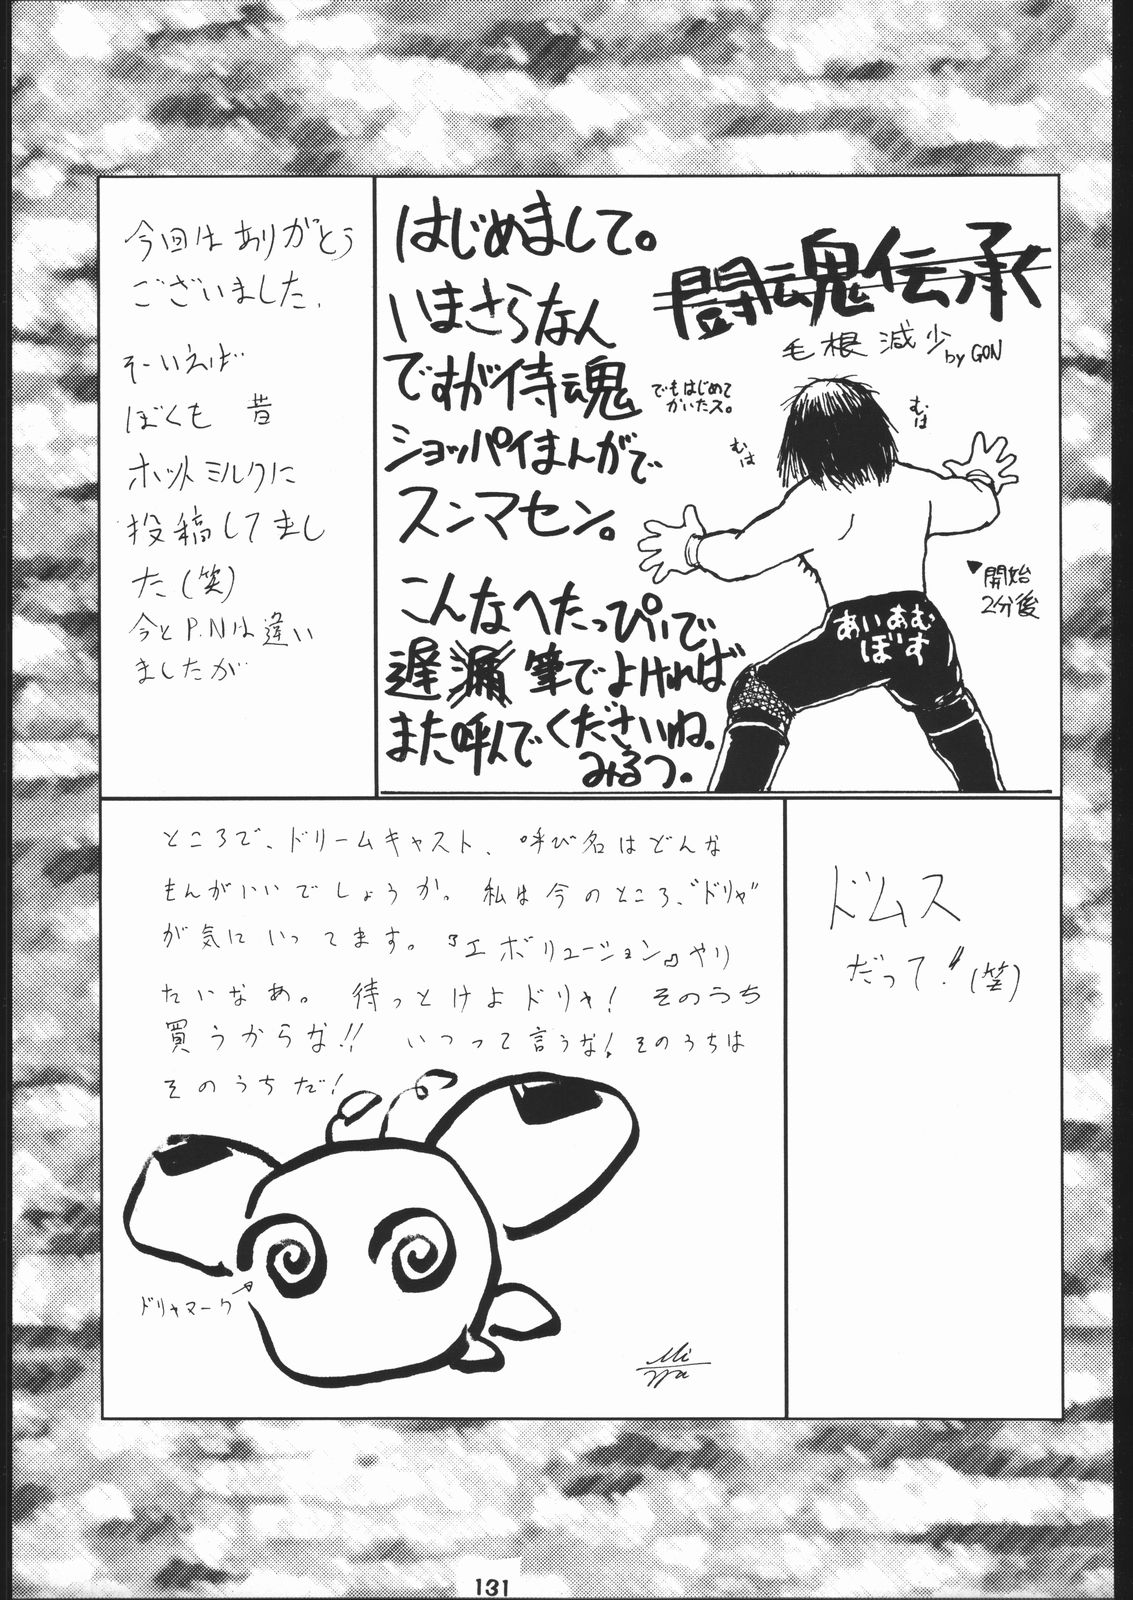 はじめまして。
いまさらなん
ですが侍魂
ショッパイまんがで
スンマセン。
こんなへたっぴいで
遅漏筆でよければ
また呼んでくださいね。
みるつ。
闘魂伝承
毛根減少 by GON
でもはじめて
かいたス。
むは
むは
▼開始
2分後
あいあむ
ぼす
今回はありがとう
ございました、
そーいえば
ぼくも 昔
ホットミルクに
投稿してまし
た(笑)
今とP.Nは違い
ましたが
ところで、ドリームキャスト、呼び名はどんな
もんがいいでしょうか。私は今のところ、"ドリャ"
が気にいってます。『エボリューション』やり
たいなあ。待っとけよドリャ!そのうち
買うからな!!いつって言うな!そのうちは
そのうちだ!
ドリャマーク
ドムス
だって!!(笑)
131